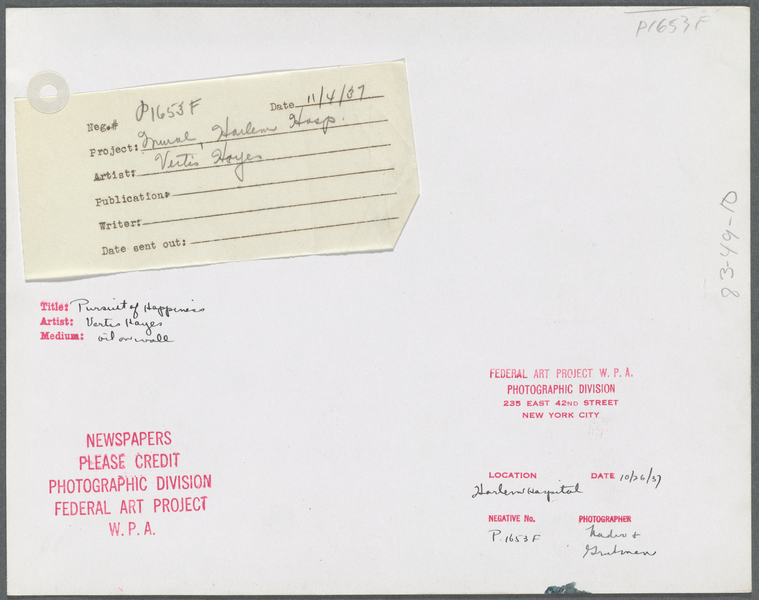 P1653F
Neg.# P1653F Date 11/4/37
Project: Mural, Harlem Hosp.
Artist: Vertis Hayes
Publication:
Writer:
Date sent out:
83-49-10
Title: Pursuit of Happiness
Artist: Vertis Hayes
Medium: oil on wall
NEWSPAPERS
PLEASE CREDIT
PHOTOGRAPHIC DIVISION
FEDERAL ART PROJECT
W. P. A.
FEDERAL ART PROJECT W. P. A.
PHOTOGRAPHIC DIVISION
235 EAST 42ND STREET
NEW YORK CITY
LOCATION DATE 10/26/37
Harlem Hospital
NEGATIVE No. PHOTOGRAPHER
P. 1653 F